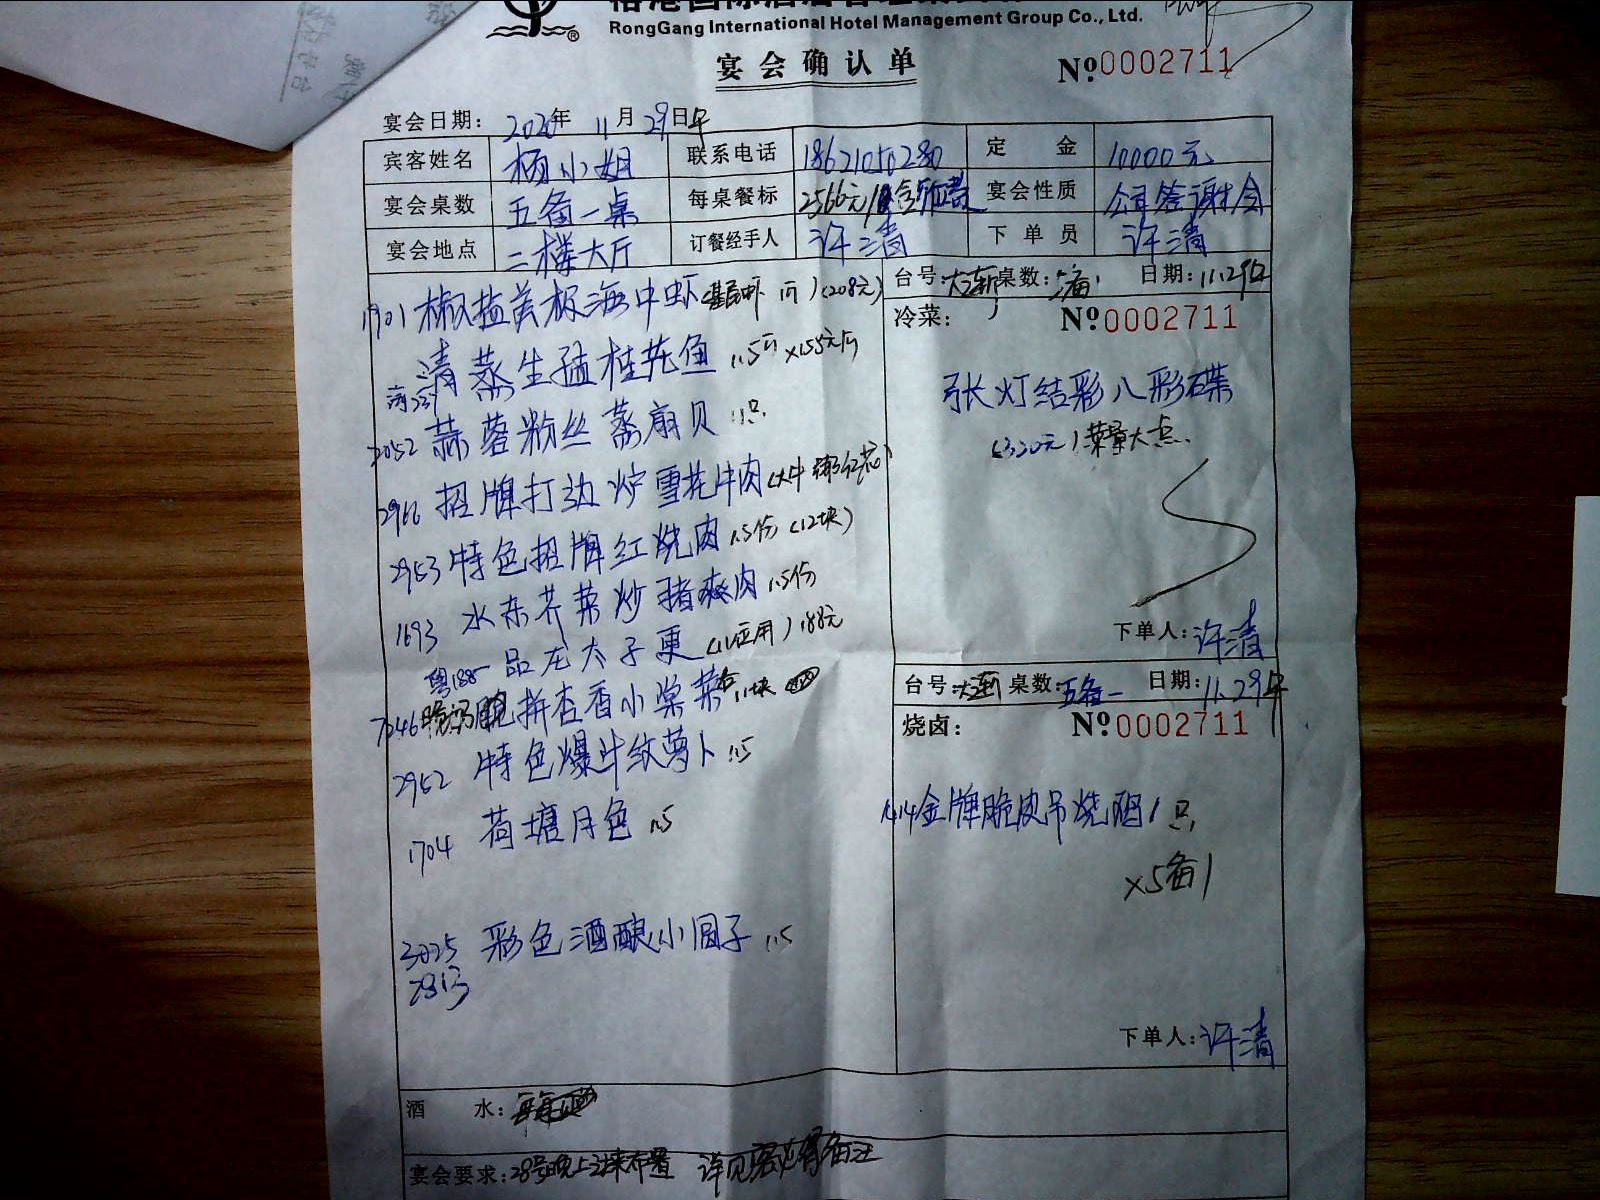 RongGang International Hotel Management Group Co., Ltd.
宴会确认单 №0002711
宴会日期: 2020年 11月29日午
宾客姓名 杨小姐 联系电话 18621050280 定金 10000元
宴会桌数 五备一桌 每桌餐标 2566元/ 宴会性质 公司答谢会
宴会地点 二楼大厅 订餐经手人 许清 下单员 许清
1901 椒盐美极海中虾(基围虾1斤)(208元)
清蒸生猛桂花鱼 1.5斤×155元/斤
2052 蒜蓉粉丝蒸扇贝 11只
2966 招牌打边炉雪花牛肉
2953 特色招牌红烧肉 1.5份(12块)
1693 水东芥菜炒猪爽肉 1.5份
粤188 品左太子更 188元
7246 拼杏香小棠菜 11块
2952 特色爆汁纹萝卜 1.5
1704 荷塘月色 1.5
3025 彩色酒酿小圆子 1.5
2313
台号: 桌数: 日期: 11.29午
冷菜: №0002711
张灯结彩八形碟
(320元)菜量大点.
下单人: 许清
台号: 桌数: 五备一 日期: 11.29午
烧卤: №0002711
1414 金牌脆皮吊烧鸡1只
×5备1
下单人: 许清
酒水:
宴会要求: 28号晚上过来布置 详见 备注